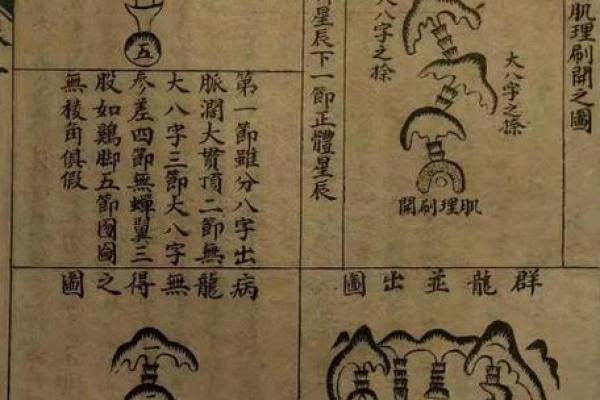 肌理刷開之圖
大八字之捺
大八字之捺
肌理刷開
星辰下一節正體星辰
五
第一節雖分八字出
脈濶大貫頂二節無
大八字三節大八字
參差四節無蟬翼三
股如鷄脚五節囫圇
無稜角俱假
群龍並出圖
病龍無得之圖
一
二